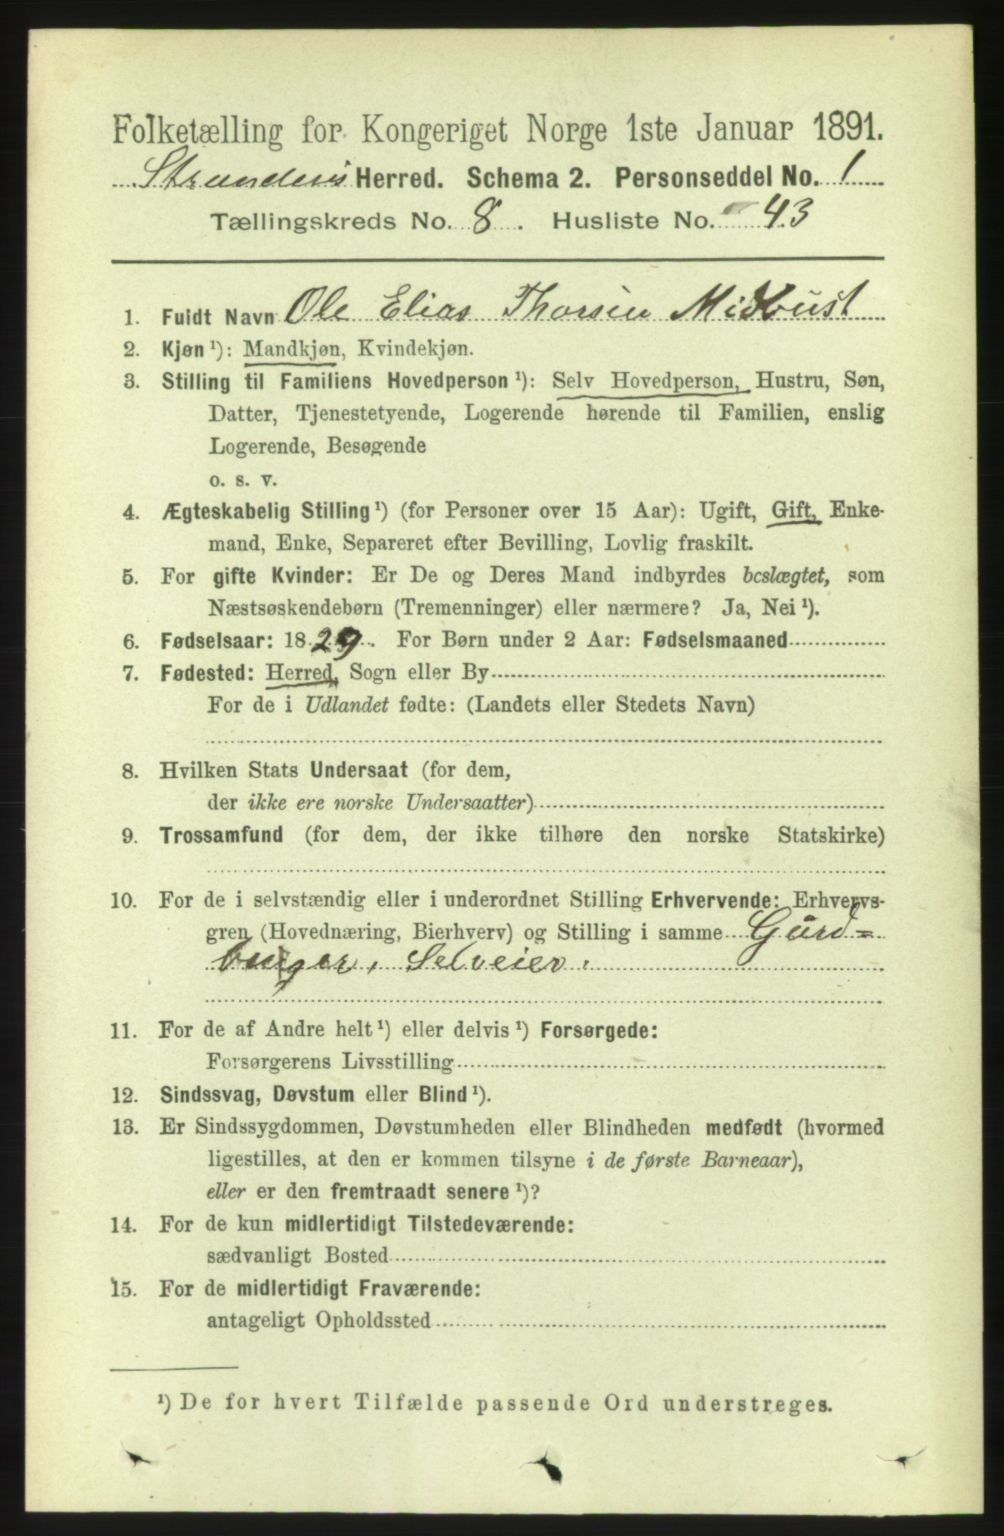 Folketælling for Kongeriget Norge 1ste Januar 1891.
Herred. Schema 2. Personseddel No. 1
Tællingskreds No. 8. Husliste No. 43
1. Fuldt Navn Ole Elias Thorsen Midtbust
2. Kjøn ¹): Mandkjøn, Kvindekjøn.
3. Stilling til Familiens Hovedperson ¹): Selv Hovedperson, Hustru, Søn,
Datter, Tjenestetyende, Logerende hørende til Familien, enslig
Logerende, Besøgende
o. s. v.
4. Ægteskabelig Stilling ¹) (for Personer over 15 Aar): Ugift, Gift, Enke-
mand, Enke, Separeret efter Bevilling, Lovlig fraskilt.
5. For gifte Kvinder: Er De og Deres Mand indbyrdes beslægtet, som
Næstsøskendebørn (Tremenninger) eller nærmere? Ja, Nei ¹).
6. Fødselsaar: 1829. For Børn under 2 Aar: Fødselsmaaned
7. Fødested: Herred, Sogn eller By
For de i Udlandet fødte: (Landets eller Stedets Navn)
8. Hvilken Stats Undersaat (for dem,
der ikke ere norske Undersaatter)
9. Trossamfund (for dem, der ikke tilhøre den norske Statskirke)
10. For de i selvstændig eller i underordnet Stilling Erhvervende: Erhvervs-
gren (Hovednæring, Bierhverv) og Stilling i samme Gård=
bruger, Selveier.
11. For de af Andre helt ¹) eller delvis ¹) Forsørgede:
Forsørgerens Livsstilling
12. Sindssvag, Døvstum eller Blind ¹).
13. Er Sindssygdommen, Døvstumheden eller Blindheden medfødt (hvormed
ligestilles, at den er kommen tilsyne i de første Barneaar),
eller er den fremtraadt senere ¹)?
14. For de kun midlertidigt Tilstedeværende:
sædvanligt Bosted
15. For de midlertidigt Fraværende:
antageligt Opholdssted
¹) De for hvert Tilfælde passende Ord understreges.